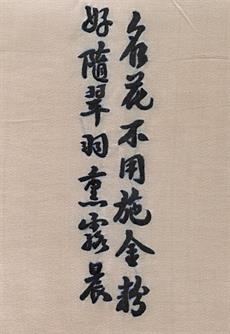 名花不用施金粉
好随翠羽熏露晨